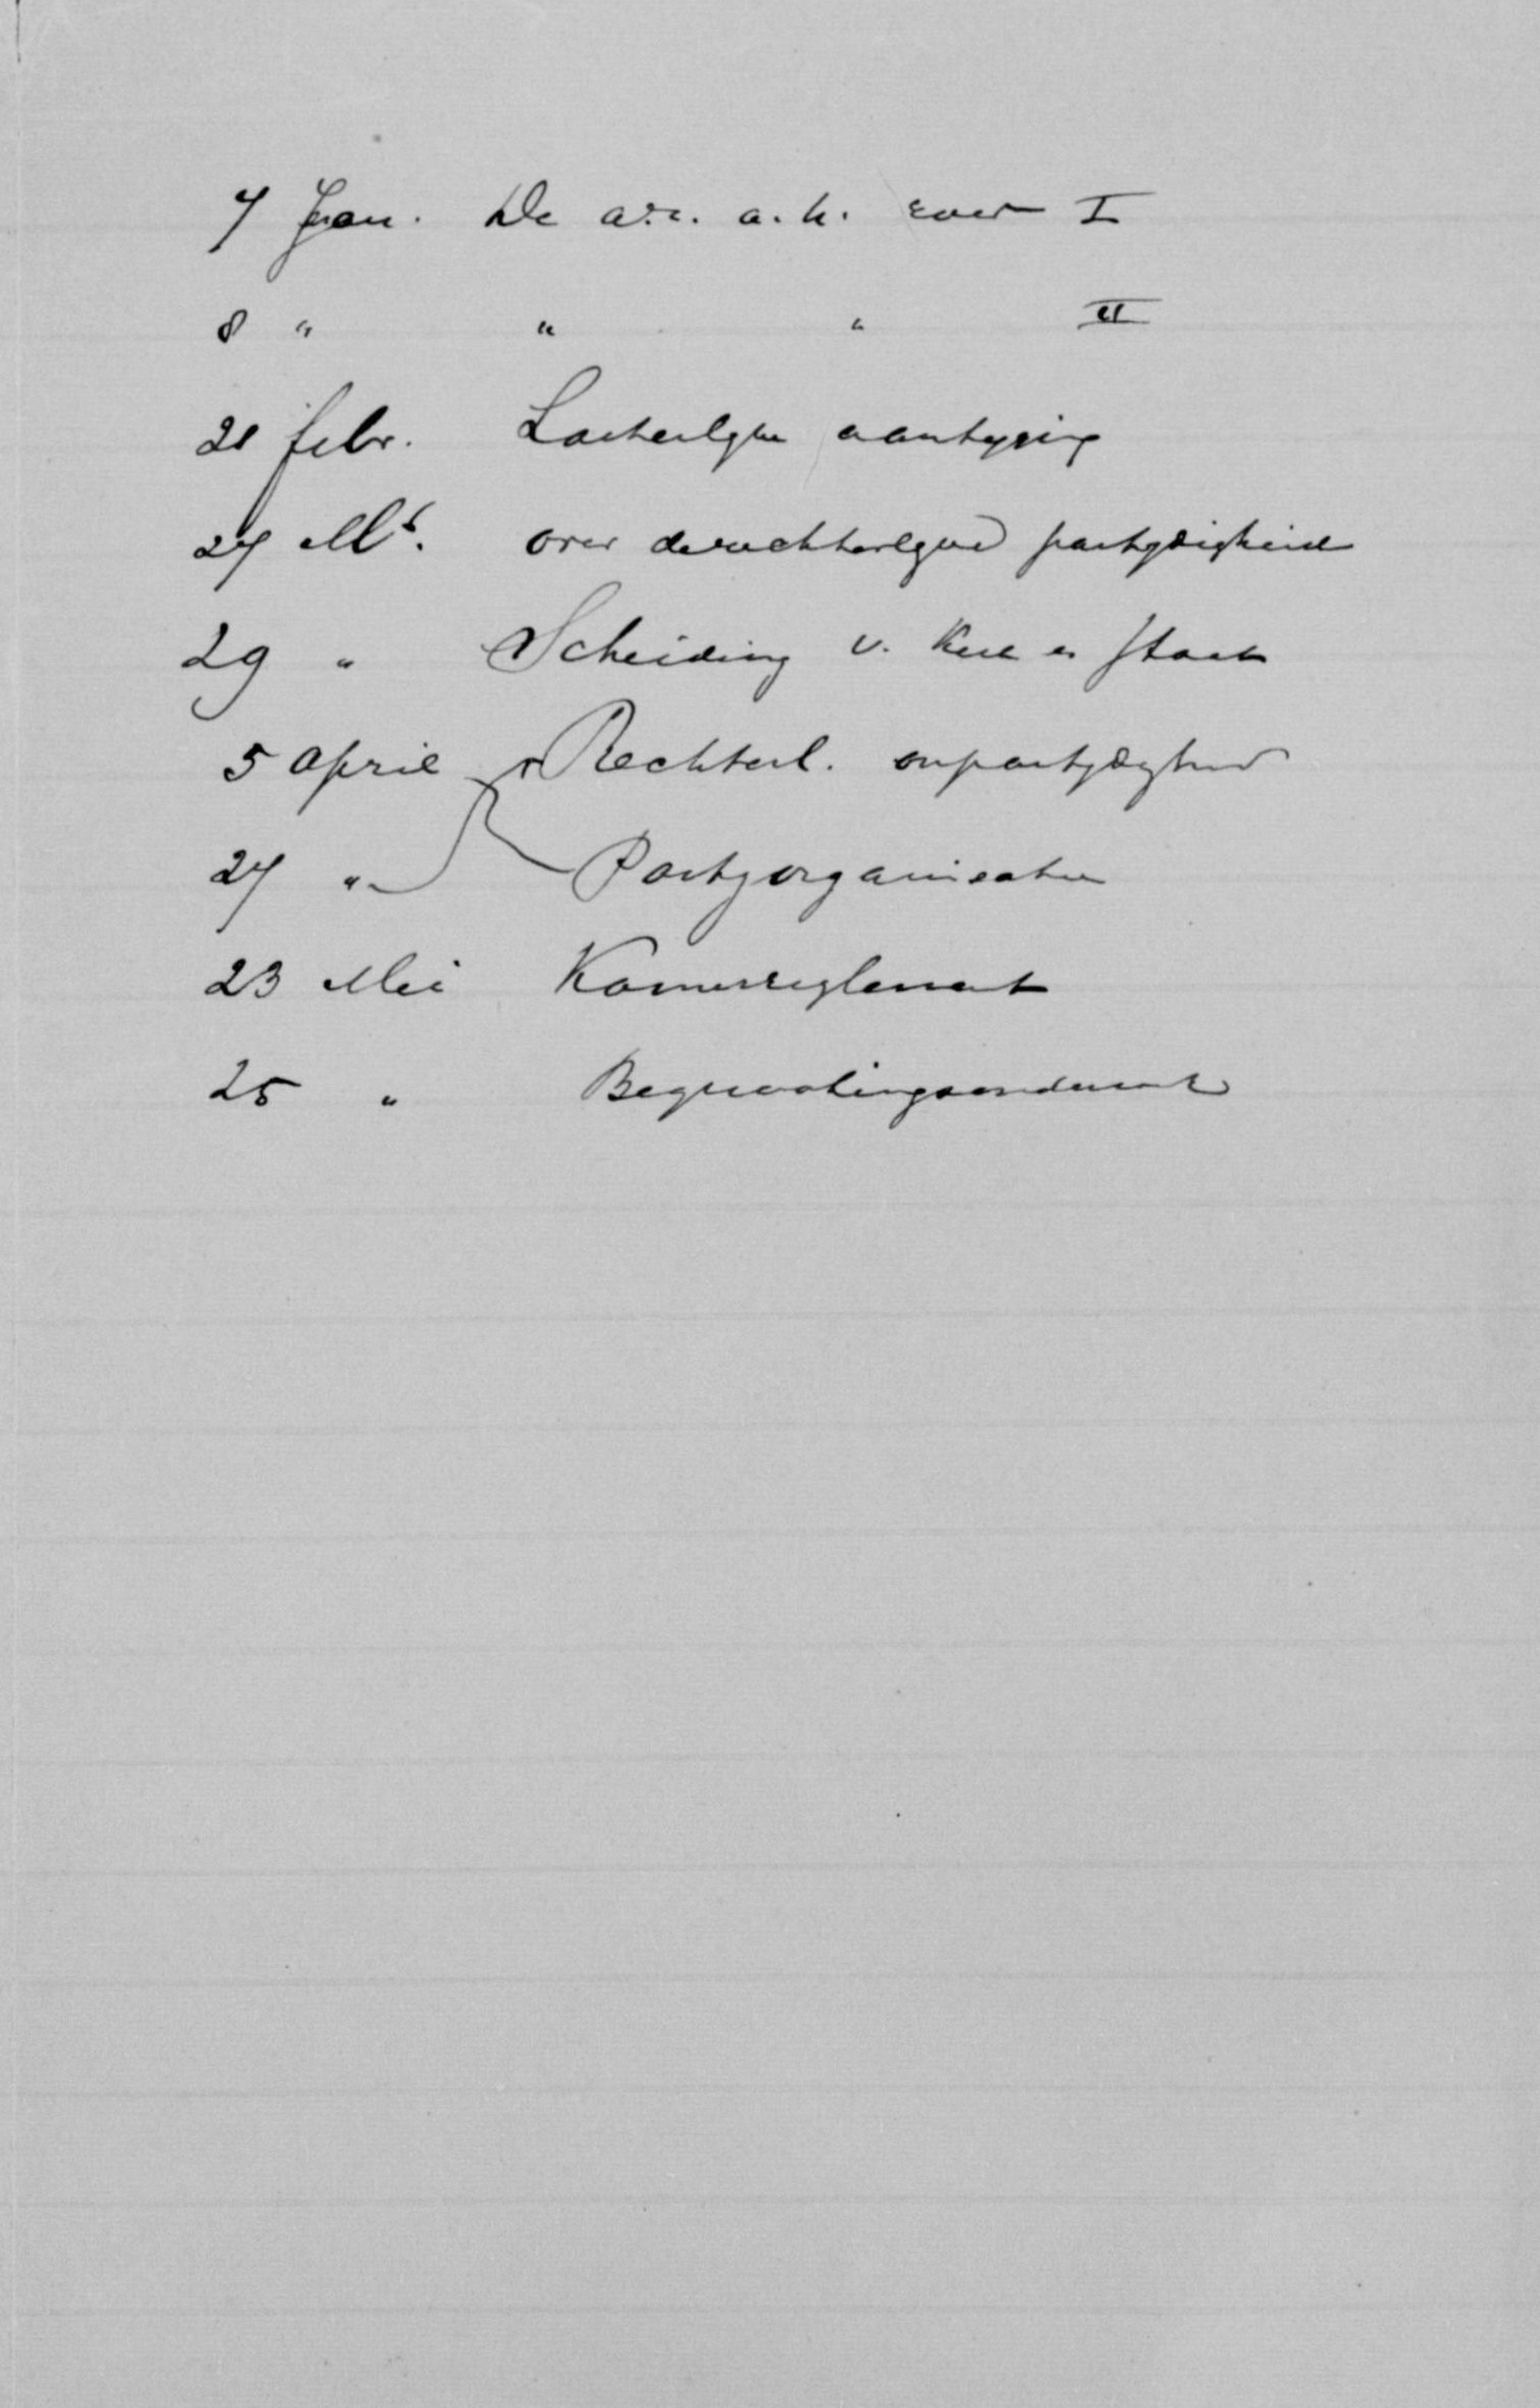 7 Jan. De a.r. a.h. over I
8 " " " II
21 febr. Lasterlijke aantijging
27 Mt. over de rechterlijke partijdigheid
29 " Scheiding v. Kerk en Staat
5 April Rechterl. onpartijdigheid
27 " Partijorganisatie
23 Mei Kamerreglement
25 "